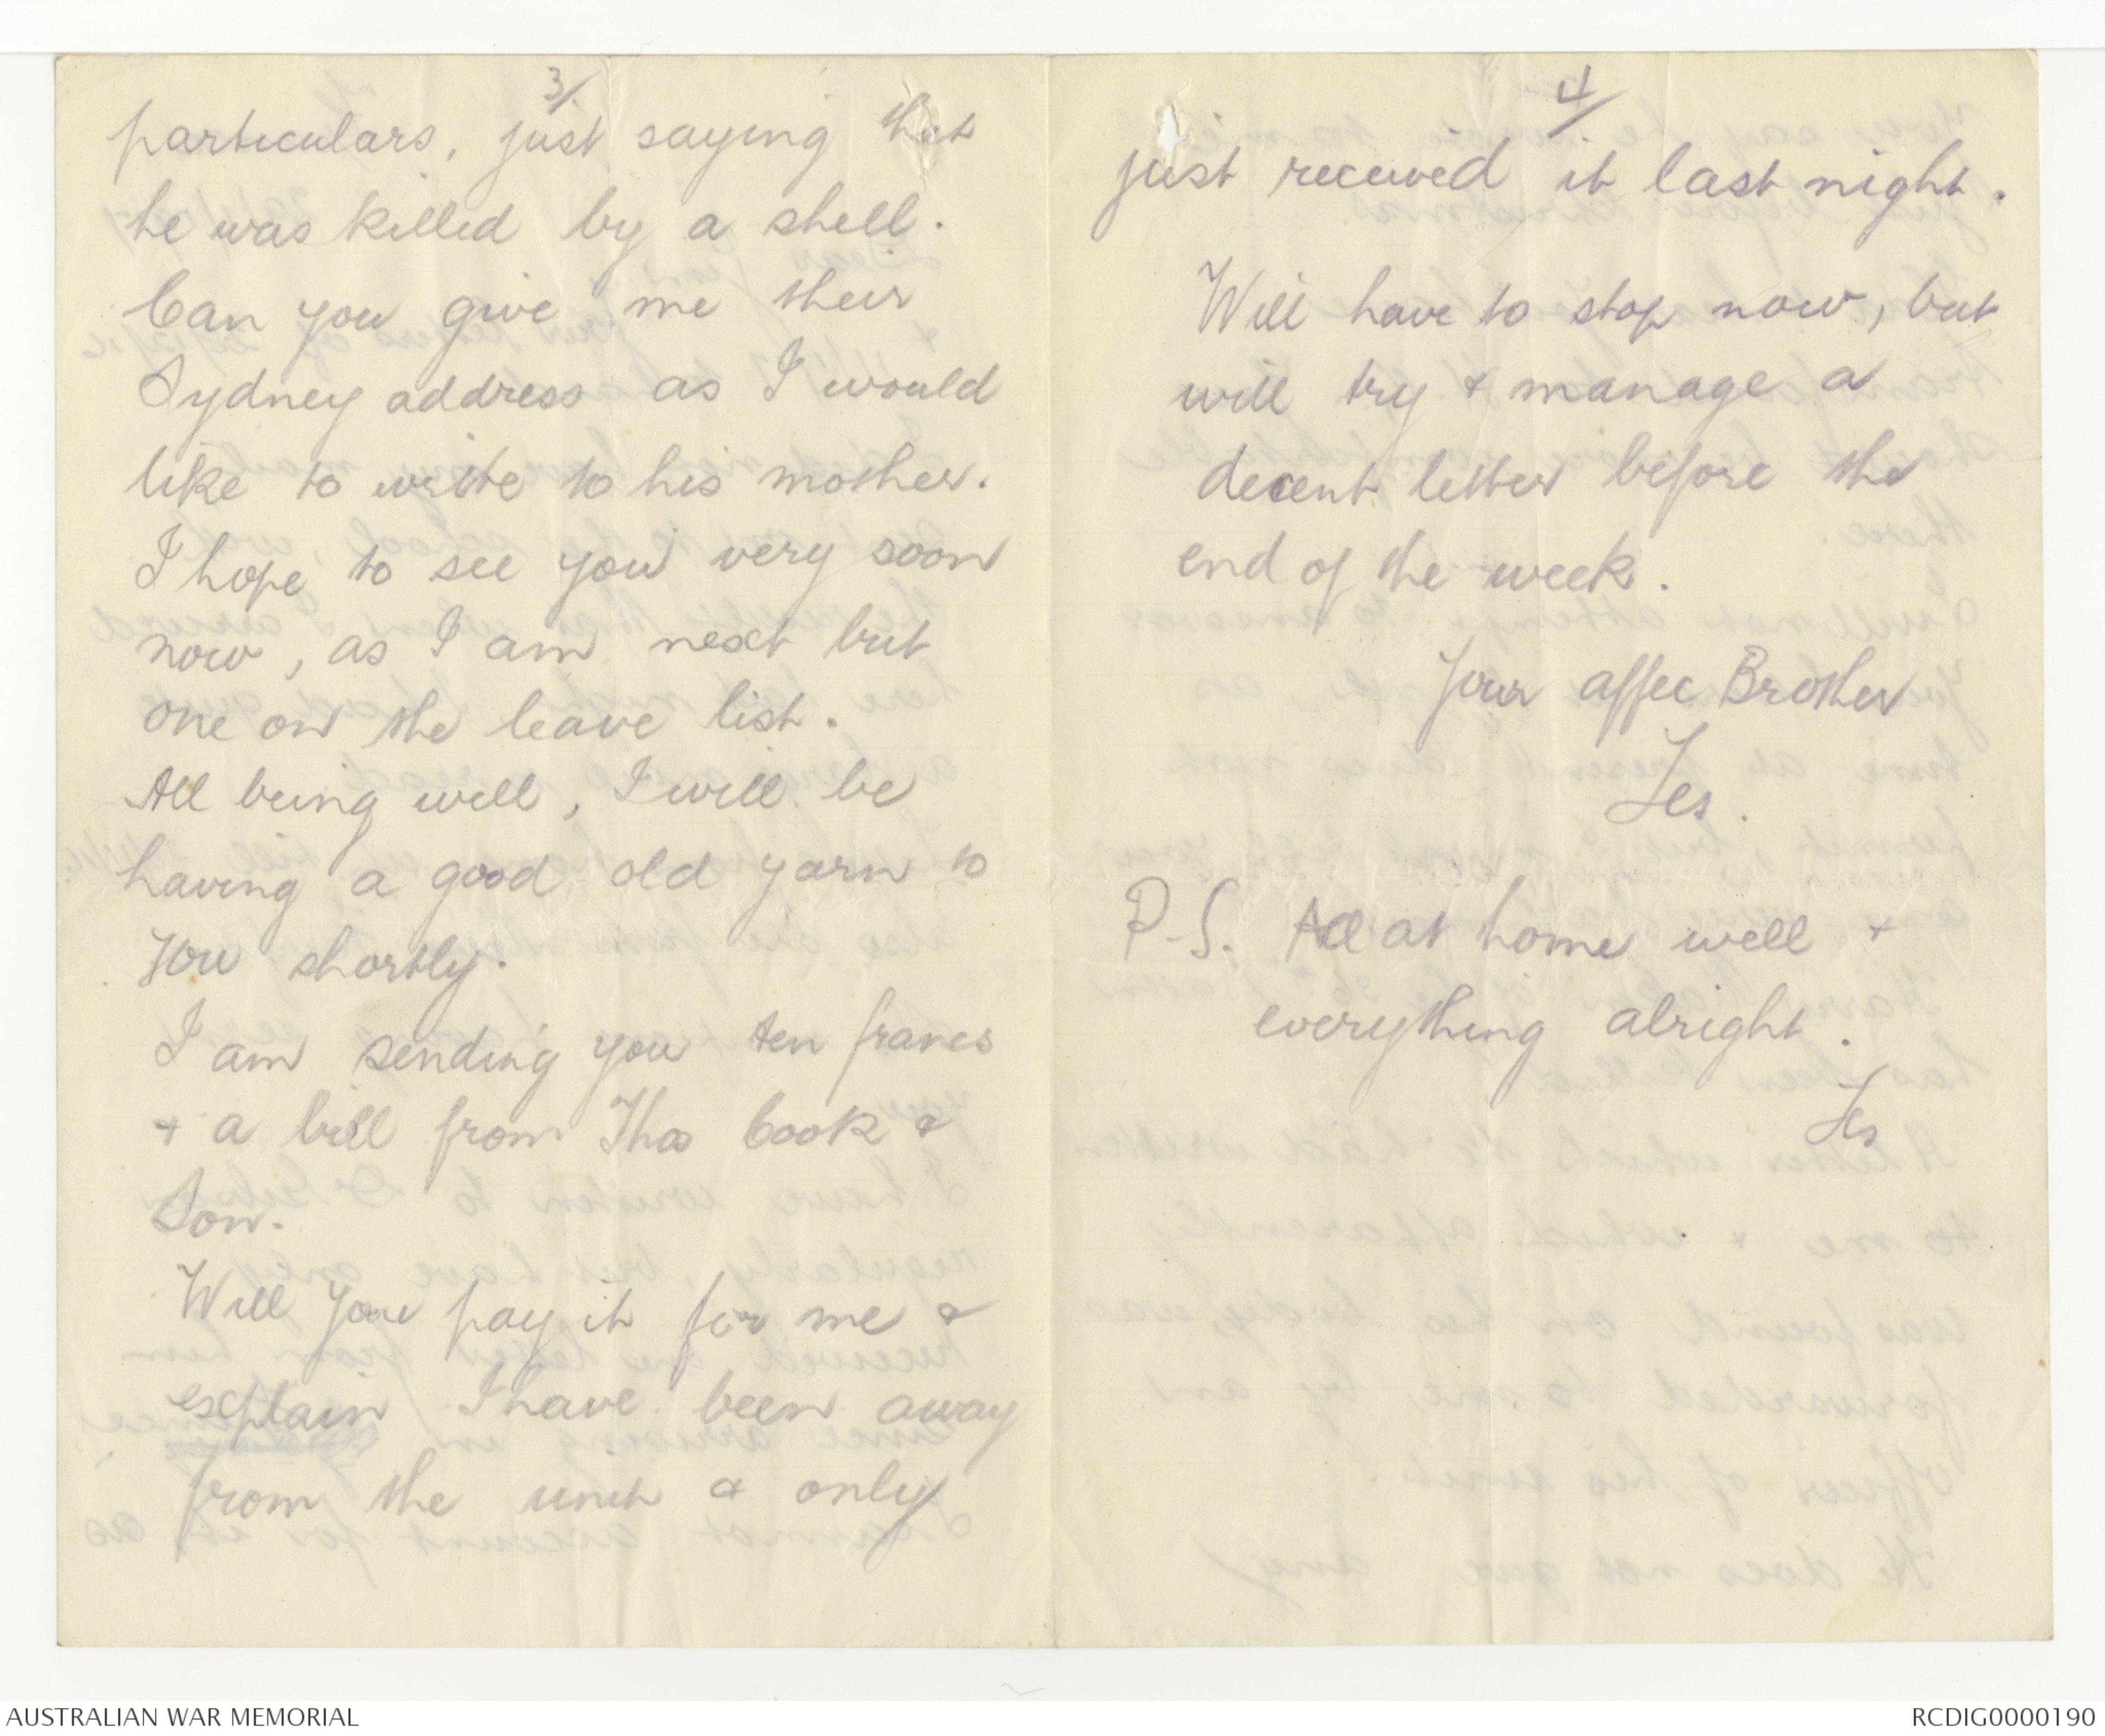 3/
particulars, just saying that
he was killed by a shell.
Can you give me their
Sydney address as I would
like to write to his mother.
I hope to see you very soon
now, as I am next but
one on the leave list.
All being well, I will be
having a good old yarn to
you shortly.
I am sending you ten francs
& a bill from Thos Cook &
Son.
Will you pay it for me &
explain I have been away
from the unit & only
4/
just received it last night.
Will have to stop now, but
will try & manage a
decent letter before the
end of the week.
Your affec Brother
Les.
P.S. All at home well &
everything alright.
Les
AUSTRALIAN WAR MEMORIAL
RCDIG0000190